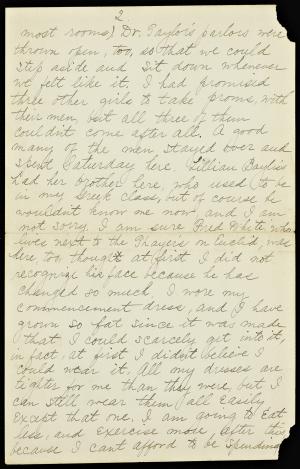 2.
most rooms) Dr. Taylor's parlors were
thrown open, too, so that we could
step aside and sit down whenever
we felt like it. I had promised
three other girls to take proms, with
their men, but all three of them
couldn't come after all. A good
many of the men stayed over and
spent Saturday here. Lillian Bayliss
had her brother here, who used to be
in my Greek class, but of course he
wouldn't know me now, and I am
not sorry. I am sure Fred White who
lives next to the Thayers on Euclid, was
here, too, though at first I did not
recognize his face because he has
changed so much. I wore my
commencement dress, and I have
grown so fat since it was made
that I could scarcely get into it,
in fact, at first I didn't believe I
could wear it. All my dresses are
tighter for me than they were, but I
can still wear them all easily
except that one. I am going to eat
less, and exercise more, after this
because I can't afford to be spending